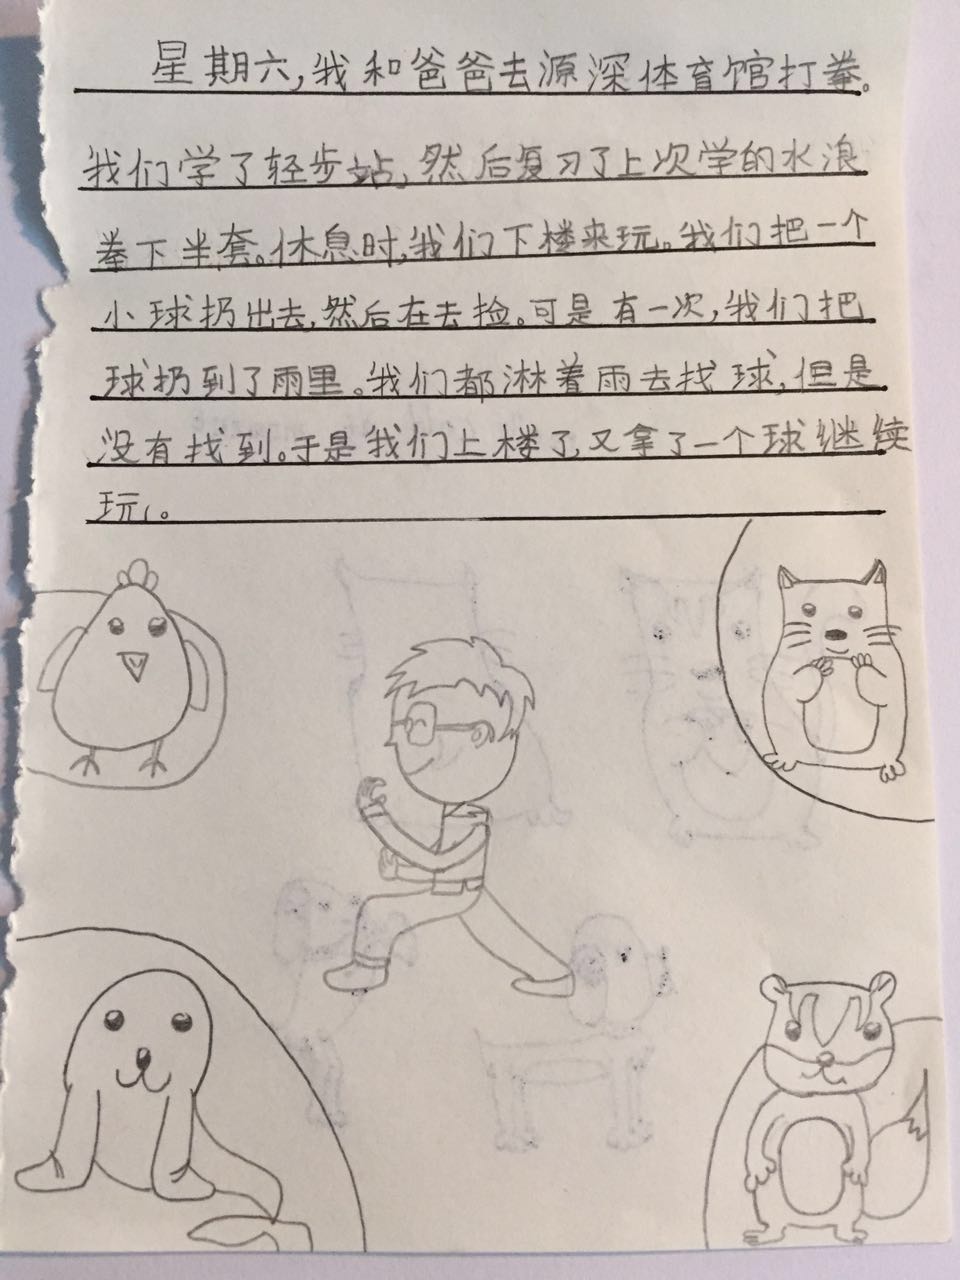 星期六，我和爸爸去源深体育馆打拳。
我们学了轻步站，然后复习了上次学的水浪
拳下半套。休息时，我们下楼来玩。我们把一个
小球扔出去，然后在去捡。可是有一次，我们把
球扔到了雨里。我们都淋着雨去找球，但是
没有找到。于是我们上楼了，又拿了一个球继续
玩。